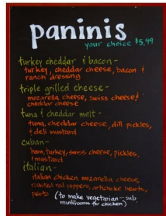 paninis
your choice $5.99
turkey cheddar & bacon-
turkey, cheddar cheese, bacon &
ranch dressing
triple grilled cheese-
mozzarella cheese, swiss cheese &
cheddar cheese
tuna & cheddar melt-
tuna, cheddar cheese, dill pickles,
& deli mustard
cuban-
ham, turkey, swiss cheese, pickles,
& mustard
italian-
italian chicken, mozzarella cheese,
roasted red peppers, artichoke hearts,
pesto (to make vegetarian - sub
mushrooms for chicken)